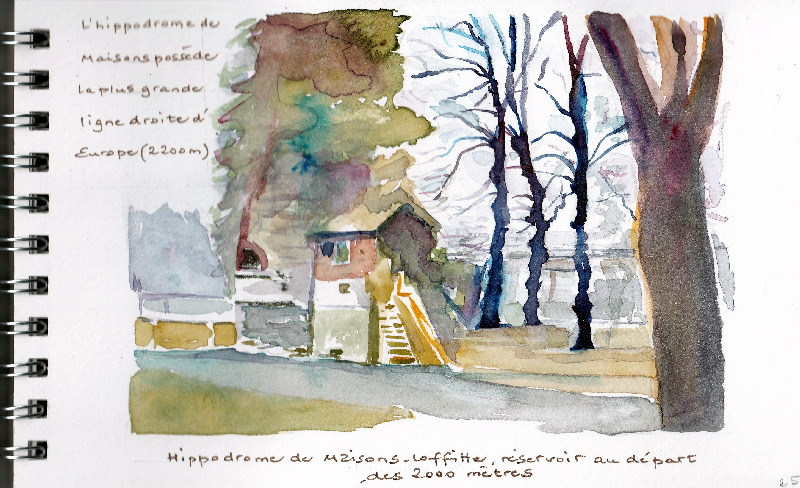 L'hippodrome de
Maisons possède
la plus grande
ligne droite d'
Europe (2200m)
Hippodrome de Maisons-Laffitte, réservoir au départ
des 2000 mètres
25